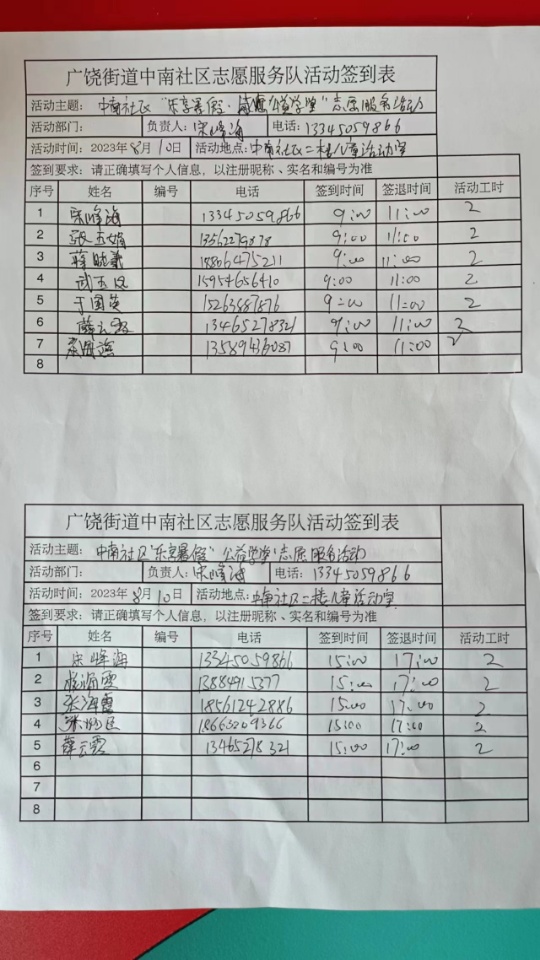 广饶街道中南社区志愿服务队活动签到表
活动主题: 中南社区“乐享暑假·公益学堂”志愿服务活动
活动部门: 负责人: 宋峰海 电话: 13345059866
活动时间: 2023年8月10日 活动地点: 中南社区二楼儿童活动室
签到要求: 请正确填写个人信息，以注册昵称、实名和编号为准
序号 姓名 编号 电话 签到时间 签退时间 活动工时
1 宋峰海 13345059866 9:00 11:00 2
2 张玉娟 9:00 11:00 2
3 蒋晓 18806475211 9:00 11:00 2
4 武玉 15954656410 9:00 11:00 2
5 于国英 15263887876 9:00 11:00 2
6 薛云霞 13465278321 9:00 11:00 2
7 13589436087 9:00 11:00 2
8
广饶街道中南社区志愿服务队活动签到表
活动主题: 中南社区“乐享暑假”公益学堂志愿服务活动
活动部门: 负责人: 宋峰海 电话: 13345059866
活动时间: 2023年8月10日 活动地点: 中南社区二楼儿童活动室
签到要求: 请正确填写个人信息，以注册昵称、实名和编号为准
序号 姓名 编号 电话 签到时间 签退时间 活动工时
1 宋峰海 13345059866 15:00 17:00 2
2 13884915377 15:00 17:00 2
3 张海霞 18561242886 15:00 17:00 2
4 18663209366 15:00 17:00 2
5 薛云霞 13465278321 15:00 17:00 2
6
7
8